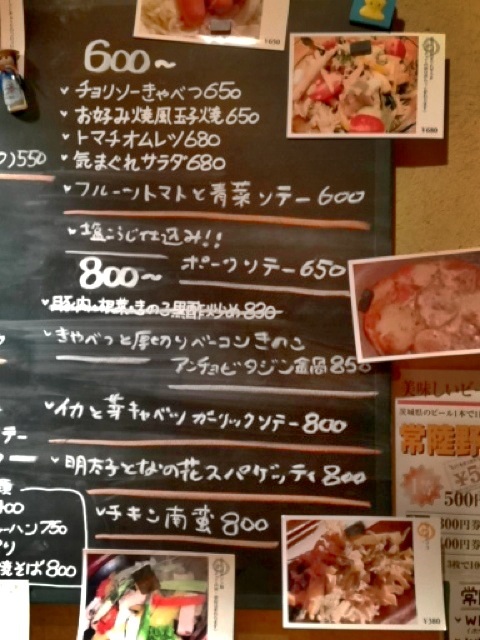 600~
チョリソーきゃべつ650
お好み焼風玉子焼650
トマチオムレツ680
気まぐれサラダ680
550
フルーツトマトと青菜ソテー 600
塩こうじ仕込み!!
ポークソテー650
800~
豚肉と根菜ときのこ黒酢炒め 830
きゃべつと厚切りベーコンきのこ
アンチョビタジン鍋 850
イカと芽キャベツ ガーリックソテー 800
明太子となの花スパゲッティ 800
チキン南蛮 800
テー
ーハン750
焼そば800
¥650
¥680
¥580
美味しいビー
茨城県のビール1本で1
常陸野
500円
300円券